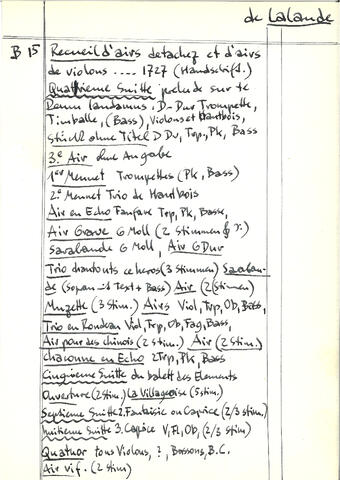 de Lalande
B 15 Recueil d'airs detachez et d'airs
de violons .... 1727 (Handschrift.)
Quatrieme Suitte prelude sur te
Deum laudamus, D-Dur Trompette,
Timballe, (Bass), Violons et Hautbois,
Stück ohne Titel D Du, Trp., Pk, Bass
3.e Air ohne Angabe
1er Menuet Trompettes (Pk, Bass)
2.e Menuet Trio de Hautbois
Air en Echo Fanfare Trp, Pk, Basse,
Air Grave G Moll (2 Stimmen
Sarabande G Moll, Air G Dur
Trio ce heros (3 Stimmen) Saraban-
de (Sopran Text + Bass) Air (2 Stimmen)
Muzette (3 Stim.) Airs Viol, Trp, Ob, Bass,
Trio en Rondeau Viol, Trp, Ob, Fag, Bass,
Air pour des chinois (2 Stim.) Air (2 Stim.)
chaconne en Echo 2 Trp, Pk, Bass
Cinqieme Suitte du balett des Elements
Ouverture (2 Stim.) La Villageoise (5 stim.)
Septieme Suitte 2. Fantaisie ou Caprice (2/3 stim.)
huitieme Suitte 3. Caprice V, Fl, Ob, (2/3 stim)
Quatuor tous Violons, ?, Bassons, B.C.
Air vif. (2 Stim)